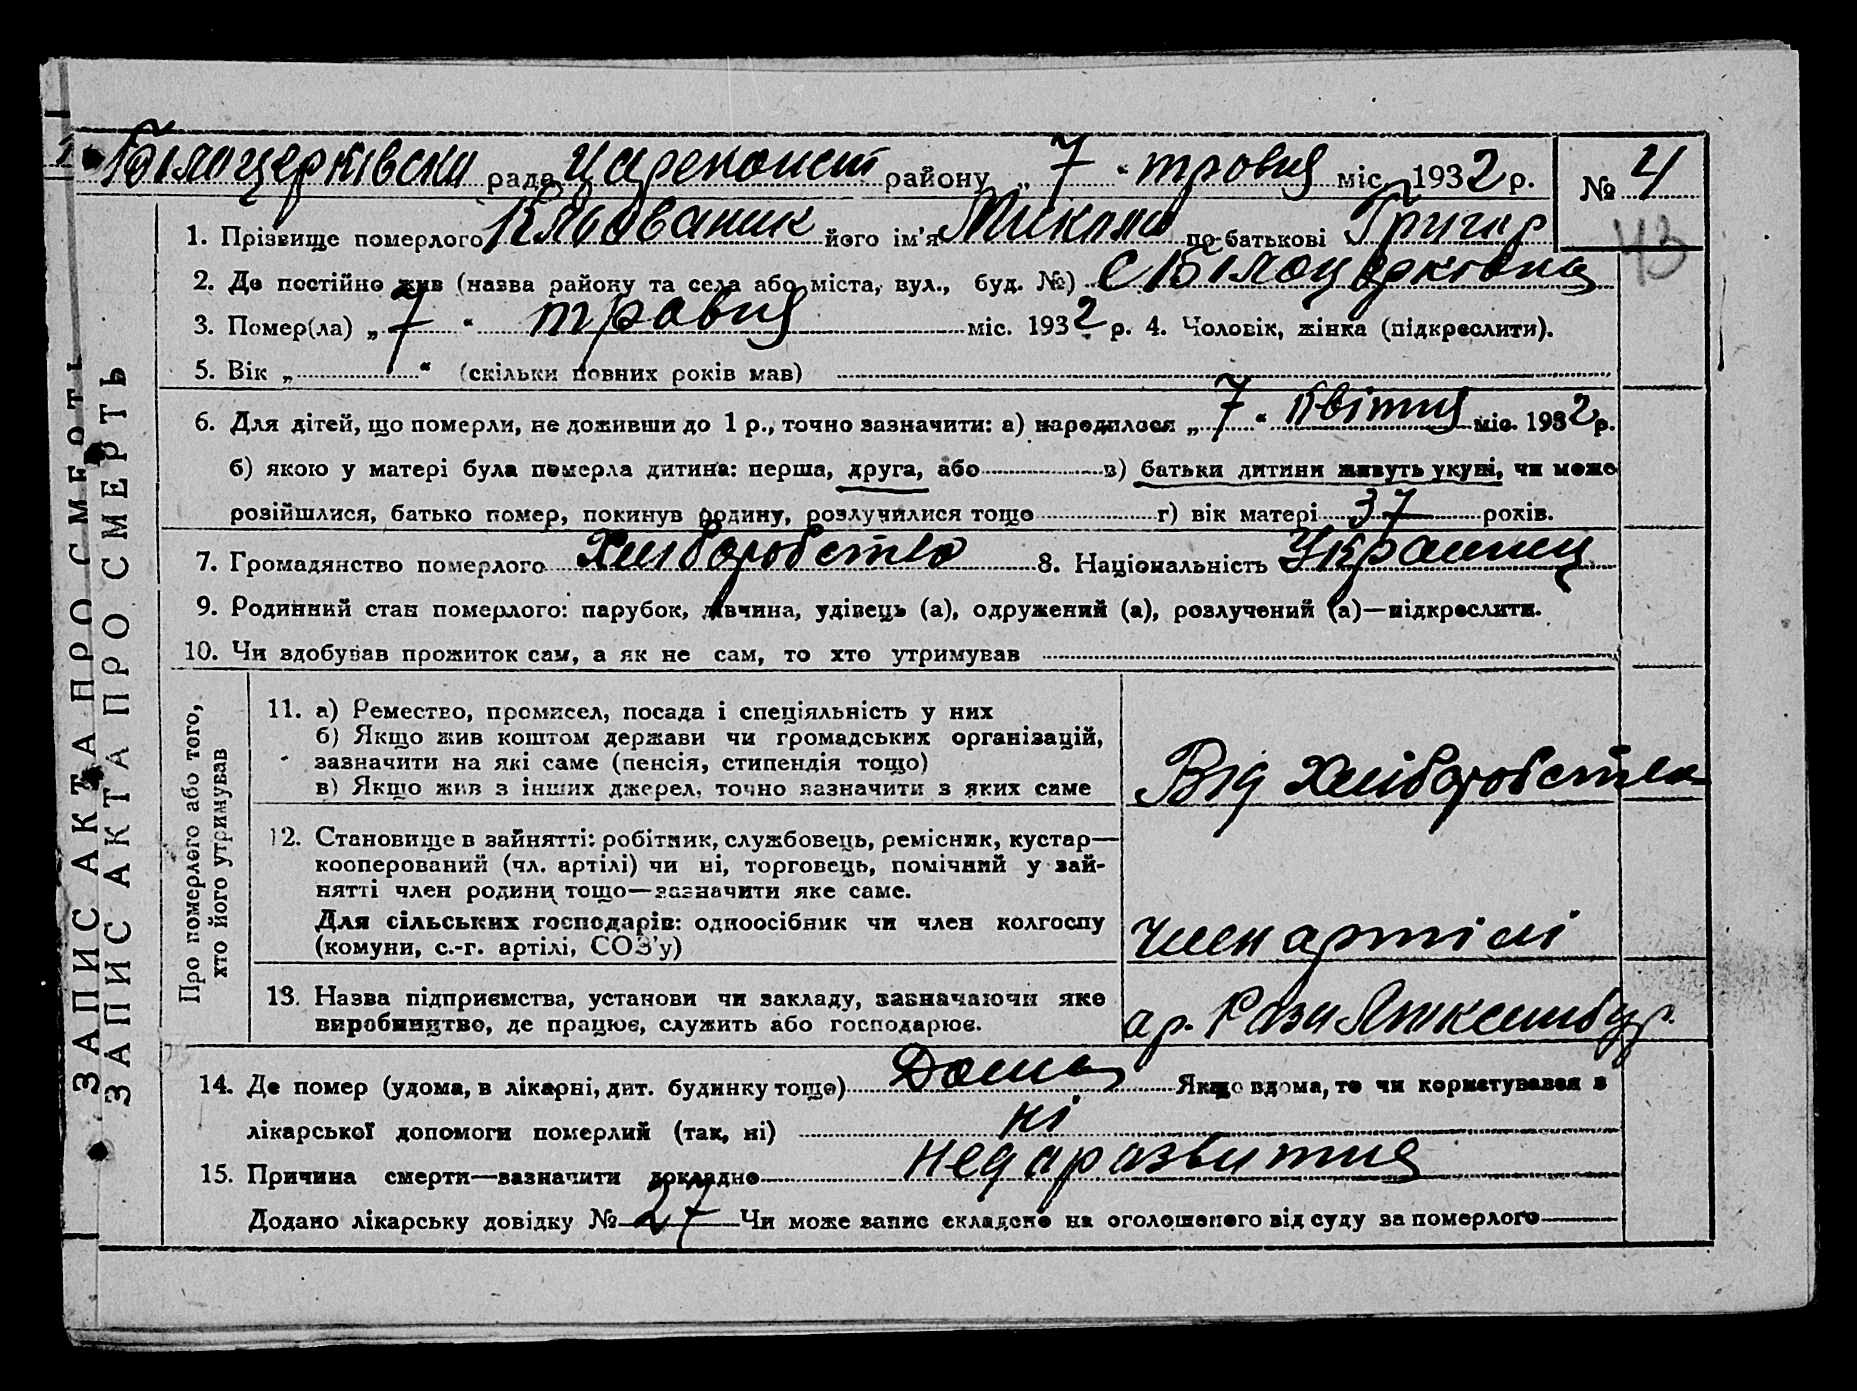 Білоцерківська рада Царекónст району „7“ травня міс. 1932 р. № 4
43
1. Прізвище померлого його ім'я Микола по-батькові Григор
2. Де постійно жив (назва району та села або міста, вул., буд. №) с Білоцерковка
3. Помер(ла) „7“ травня міс. 1932 р. 4. Чоловік, жінка (підкреслити).
5. Вік „ “ (скільки повних років мав)
6. Для дітей, що померли, не доживши до 1 р., точно зазначити: а) народилося „7“ Квітня міс. 1932 р.
б) якою у матері була померла дитина: перша, друга, або в) батьки дитини живуть укупі, чи може
розійшлися, батько помер, покинув родину, розлучилися тощо г) вік матері 37 років.
7. Громадянство померлого Хліборобство 8. Національність Украинец
9. Родинний стан померлого: парубок, дівчина, удівець (а), одружений (а), розлучений (а)—підкреслити.
10. Чи здобував прожиток сам, а як не сам, то хто утримував
Про померлого або того,
хто його утримував
11. а) Ремество, промисел, посада і спеціяльність у них
б) Якщо жив коштом держави чи громадських організацій,
зазначити на які саме (пенсія, стипендія тощо)
в) Якщо жив з інших джерел, точно зазначити з яких саме
Від Хліборобства
12. Становище в зайнятті: робітник, службовець, ремісник, кустар—
кооперований (чл. артілі) чи ні, торговець, помічний у зай-
нятті член родини тощо—зазначити яке саме.
Для сільських господарів: одноосібник чи член колгоспу
(комуни, с.-г. артілі, СОЗ'у)
член артілі
13. Назва підприємства, установи чи закладу, зазначаючи яке
виробництво, де працює, служить або господарює.
ар. Рози Люксембур.
14. Де помер (удома, в лікарні, дит. будинку тощо) Дома Якщо вдома, то чи користувався з
лікарської допомоги померлий (так, ні) ні
15. Причина смерти—зазначити докладно недаразвития
Додано лікарську довідку № 27 Чи може запис складено на оголошеного від суду за померлого
ЗАПИС АКТА ПРО СМЕРТЬ
ЗАПИС АКТА ПРО СМЕРТЬ